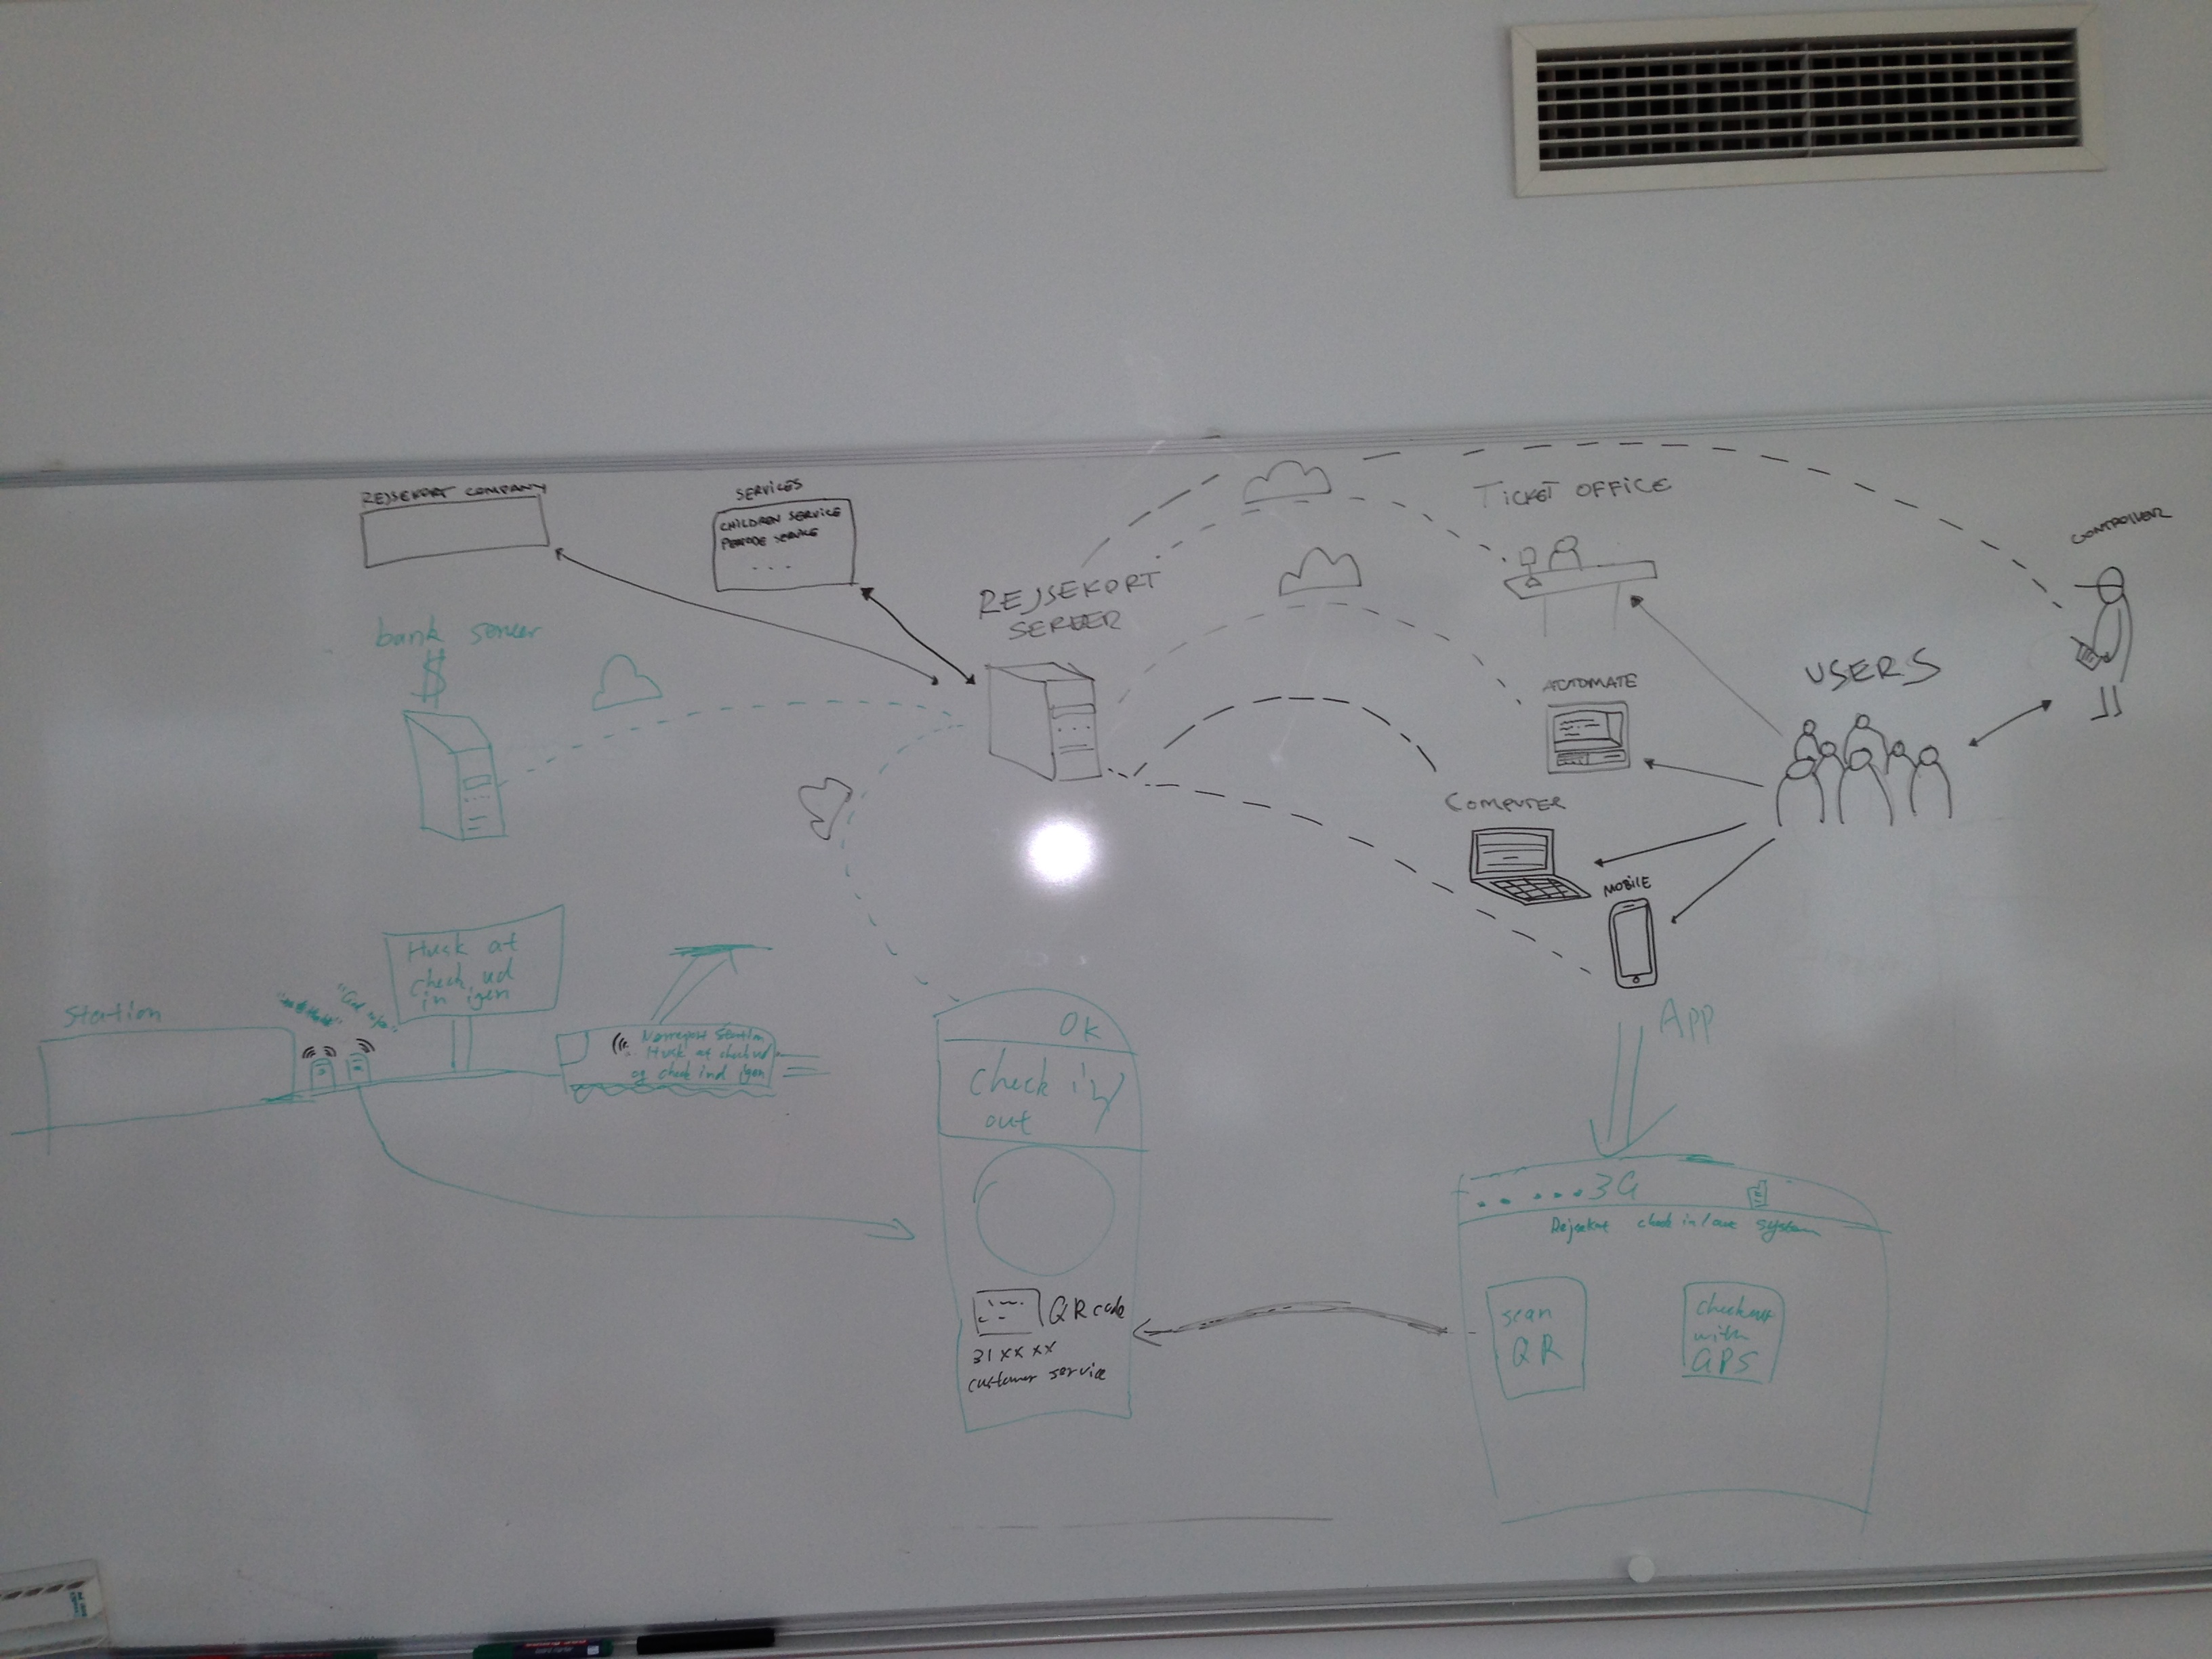 REJSEKORT COMPANY
SERVICES
CHILDREN SERVICE
PERIODE SERVICE
. . .
REJSEKORT
SERVER
TICKET OFFICE
CONTROLLER
bank server
$
AUTOMATE
USERS
COMPUTER
MOBILE
App
Station
Husk at
check ud
in igen
Nørreport Station
Husk at check ud
og check ind igen
OK
Check in/
out
QR code
31 xx xx
customer service
3G
Rejsekort check in/out system
scan
QR
checkout
with
GPS